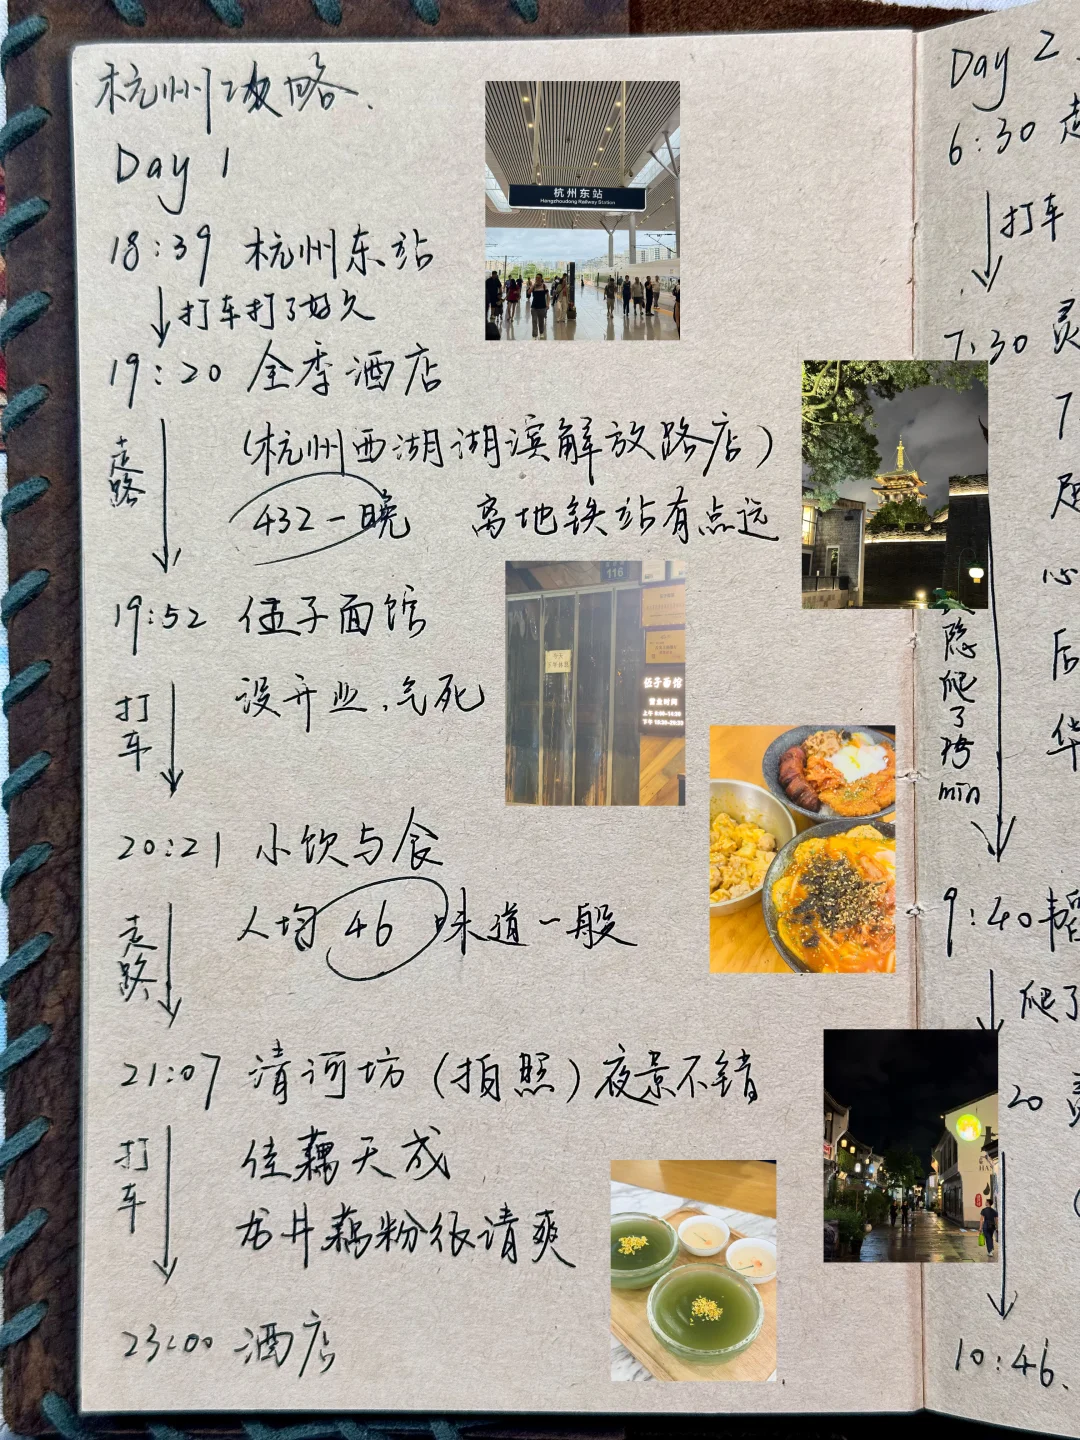 杭州攻略.
Day 1
18:39 杭州东站
打车打了好久
19:20 全季酒店
走路
(杭州西湖湖滨解放路店)
432一晚 离地铁站有点远
19:52 伍子面馆
没开业,气死
打车
20:21 小饮与食
人均 46 味道一般
走路
21:07 清河坊 (拍照) 夜景不错
打车
佳藕天成
龙井藕粉很清爽
23:00 酒店
杭州东站
Hangzhoudong Railway Station
116
伍子面馆
营业时间
Day 2
6:30
打车
7:30 灵
7
后
隐爬了
min
9:40
爬了
20 灵
10:46